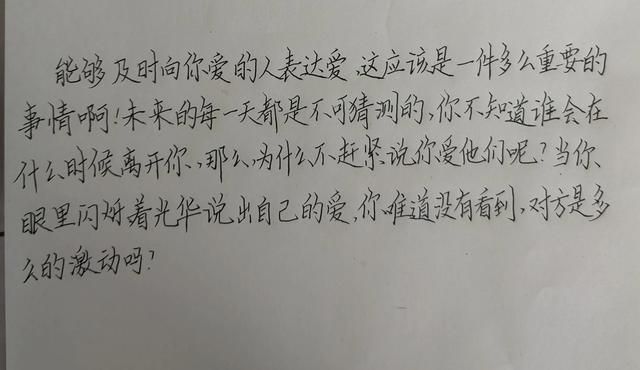 能够及时向你爱的人表达爱,这应该是一件多么重要的
事情啊!未来的每一天都是不可猜测的,你不知道谁会在
什么时候离开你,那么,为什么不赶紧说你爱他们呢?当你
眼里闪烁着光华说出自己的爱,你难道没有看到,对方是多
么的激动吗?